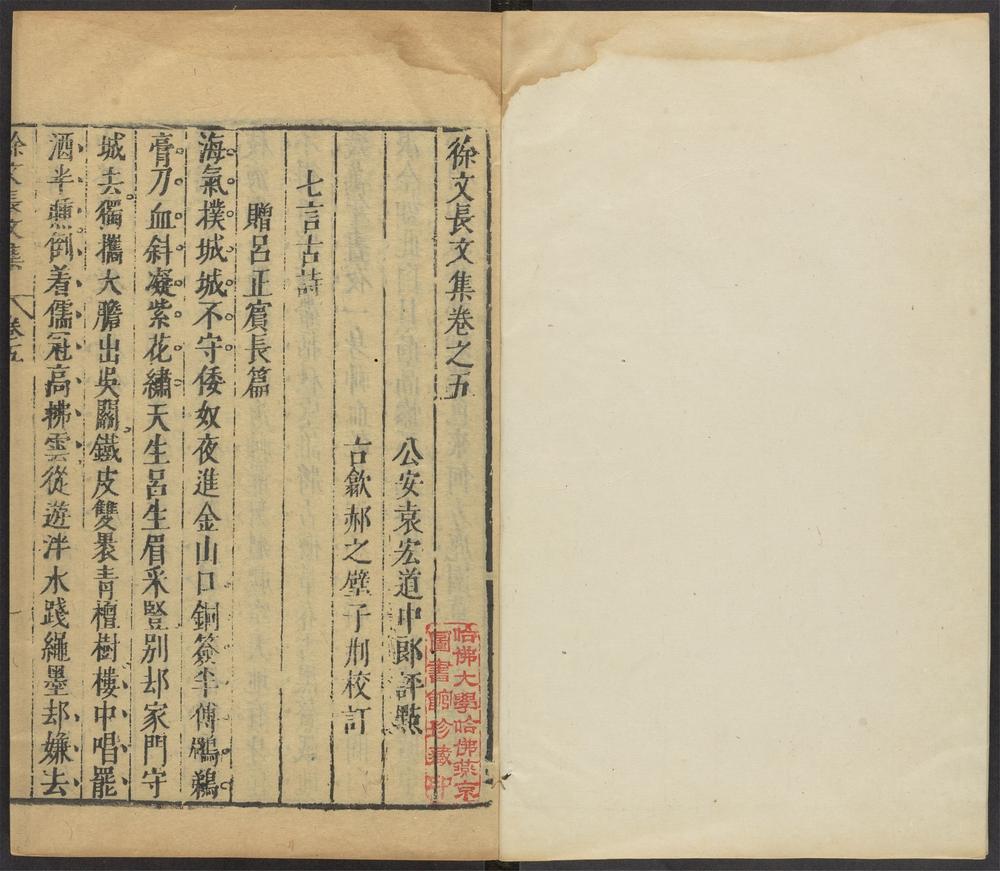 徐文長文集卷之五
公安袁宏道中郎評點
古歙郝之璧子荆校訂
七言古詩
贈呂正賓長篇
海氣撲城城不守倭奴夜進金山口銅簽半傅鸊鵜
膏刀血斜凝紫花繡天生呂生眉采豎别却家門守
城去獨攜大膽出吳關鐵皮雙裹青檀樹樓中唱罷
酒半醺倒着儒冠高拂雲從遊泮水踐繩墨却嫌去
徐文長文集 卷五
哈佛大學哈佛燕京
圖書館珍藏印